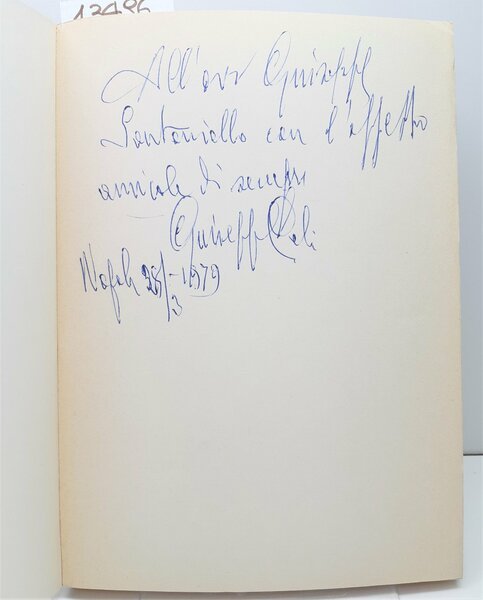 13486
All'avv Giuseppe
Santoniello con l'affetto
amicale di sempre
Giuseppe
Napoli 28/3-1979